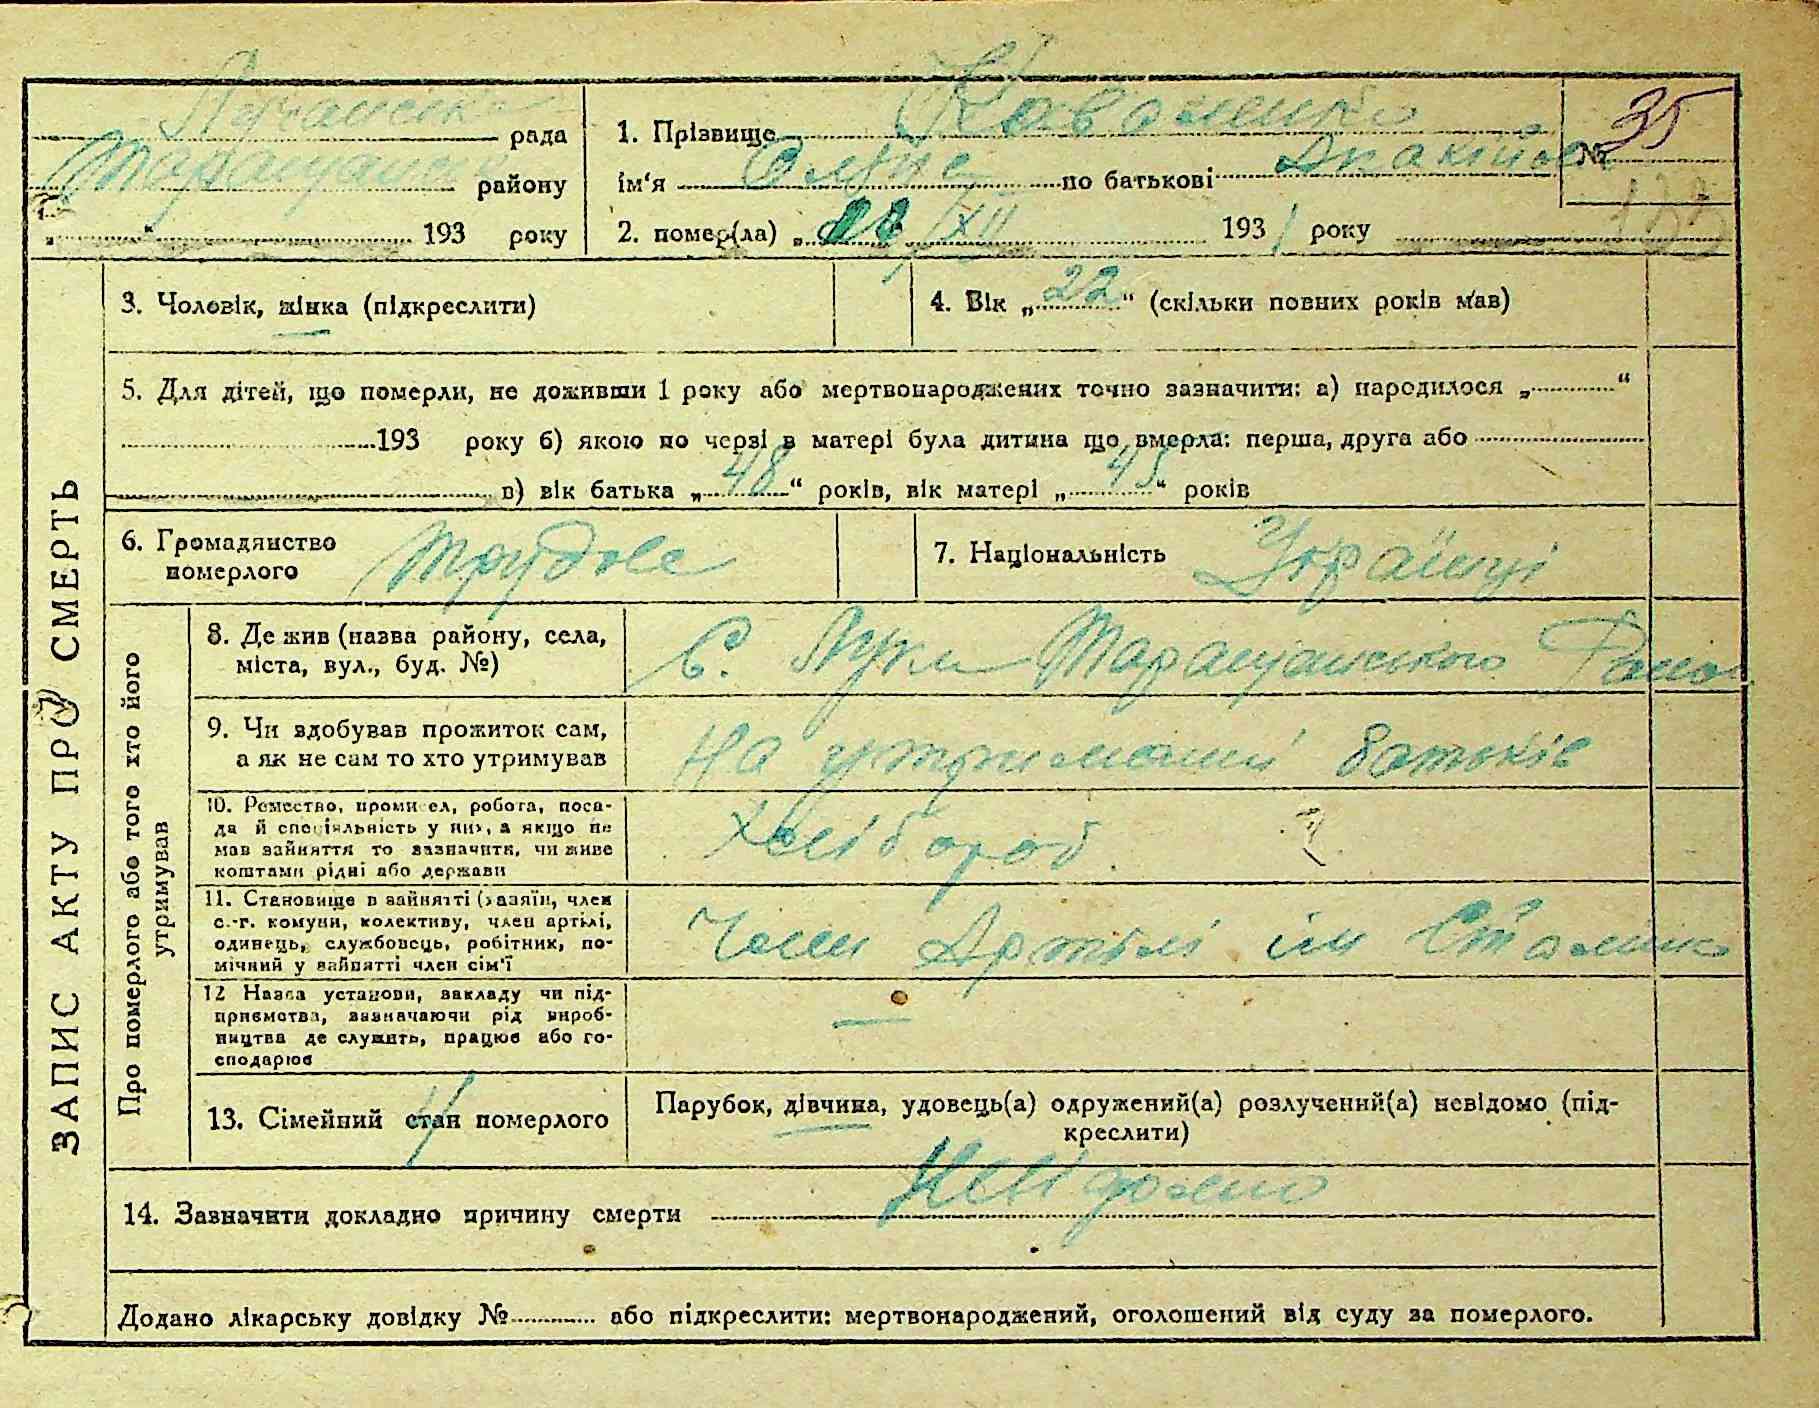 Лучанська рада
Таращанськ району
„ “ 193 року
1. Прізвище
ім‘я по батькові
№ 35
2. помер(ла) „ “ /XII 1931 року
ЗАПИС АКТУ ПРО СМЕРТЬ
3. Чоловік, жінка (підкреслити)
4. Вік „22“ (скільки повних років мав)
5. Для дітей, що померли, не доживши 1 року або мертвонароджених точно зазначити: а) народилося „ “
193 року б) якою по черзі в матері була дитина що вмерла: перша, друга або
в) вік батька „48“ років, вік матері „45“ років
6. Громадянство
померлого
Трудове
7. Національність Українці
Про померлого або того хто його
утримував
8. Де жив (назва району, села,
міста, вул., буд. №)
С. Луки Таращанського Району
9. Чи здобував прожиток сам,
а як не сам то хто утримував
На утриманні батьків
10. Ремество, промисел, робота, поса-
да й спеціяльність у них, а якщо не
мав зайняття то зазначити, чи живе
коштами рідні або держави
Хлібороб ?
11. Становище в зайнятті (хазяїн, член
с.-г. комуни, колективу, член артілі,
одинець, службовець, робітник, по-
мічний у зайнятті член сім‘ї
Член Артілі ім Сталіна
12 Назва установи, закладу чи під-
приємства, зазначаючи рід вироб-
ництва де служить, працює або го-
сподарює
—
13. Сімейний стан померлого
Парубок, дівчина, удовець(а) одружений(а) розлучений(а) невідомо (під-
креслити)
14. Зазначити докладно причину смерти Невідомо
Додано лікарську довідку № або підкреслити: мертвонароджений, оголошений від суду за померлого.